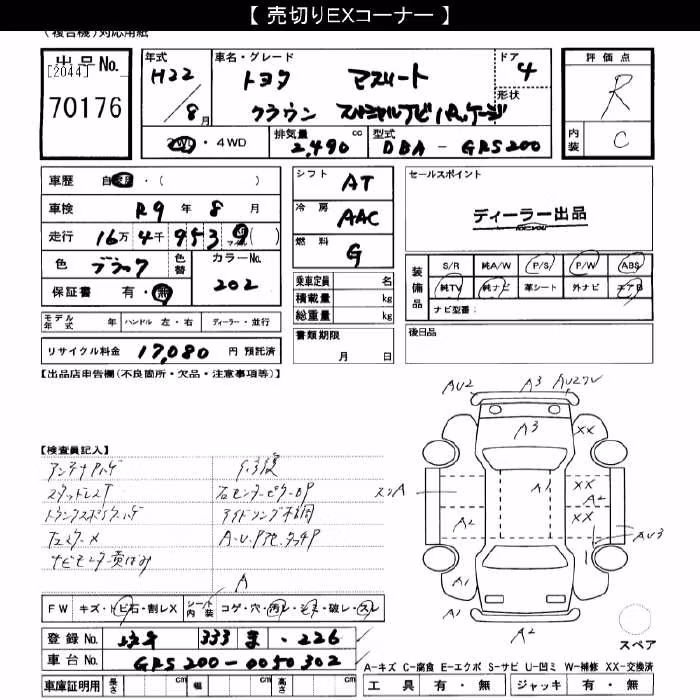 【 売切りEXコーナー 】
(複合機)対応用紙
出品No.
[2044]
70176
年式
H22
/8月
車名・グレード
トヨタ マスリート
クラウン スペシャルナビパッケージ
ドア
4
形状
評価点
R
内装
C
2WD・4WD
排気量
2,490 cc
型式
DBA - GRS200
車歴 自家・( )
車検 R9年 8月
走行 16万 4千 9 5 3 9 ( )
色 ブラック
色替
カラーNo.
202
保証書 有・無
モデル年式 年
ハンドル 左・右
ディーラー・並行
リサイクル料金 17,080 円 預託済
シフト AT
冷房 AAC
燃料 G
乗車定員 名
積載量 kg
総重量 kg
書類期限
月 日
セールスポイント
ディーラー出品
装備品
S/R 純A/W P/S P/W ABS
純TV 純ナビ 革シート 外ナビ エアB
ナビ型番:
後日品
【出品店申告欄(不良箇所・欠品・注意事項等)】
【検査員記入】
スタッドレスT
AU2 A3
A3
XX
A1
XX
A2
XX
スリA
A2
AU3
A1 A1
A1 A2
A
FW キズ・トビ石・割レX
シート内装 コゲ・穴・汚レ・シミ・破レ・スレ
登録No. 333 ま・226
車台No. GRS200-0050302
スペア
A-キズ C-腐食 E-エクボ S-サビ U-凹ミ W-補修 XX-交換済
車庫証明用 長さ cm 幅 cm 高さ cm
工具 有・無
ジャッキ 有・無